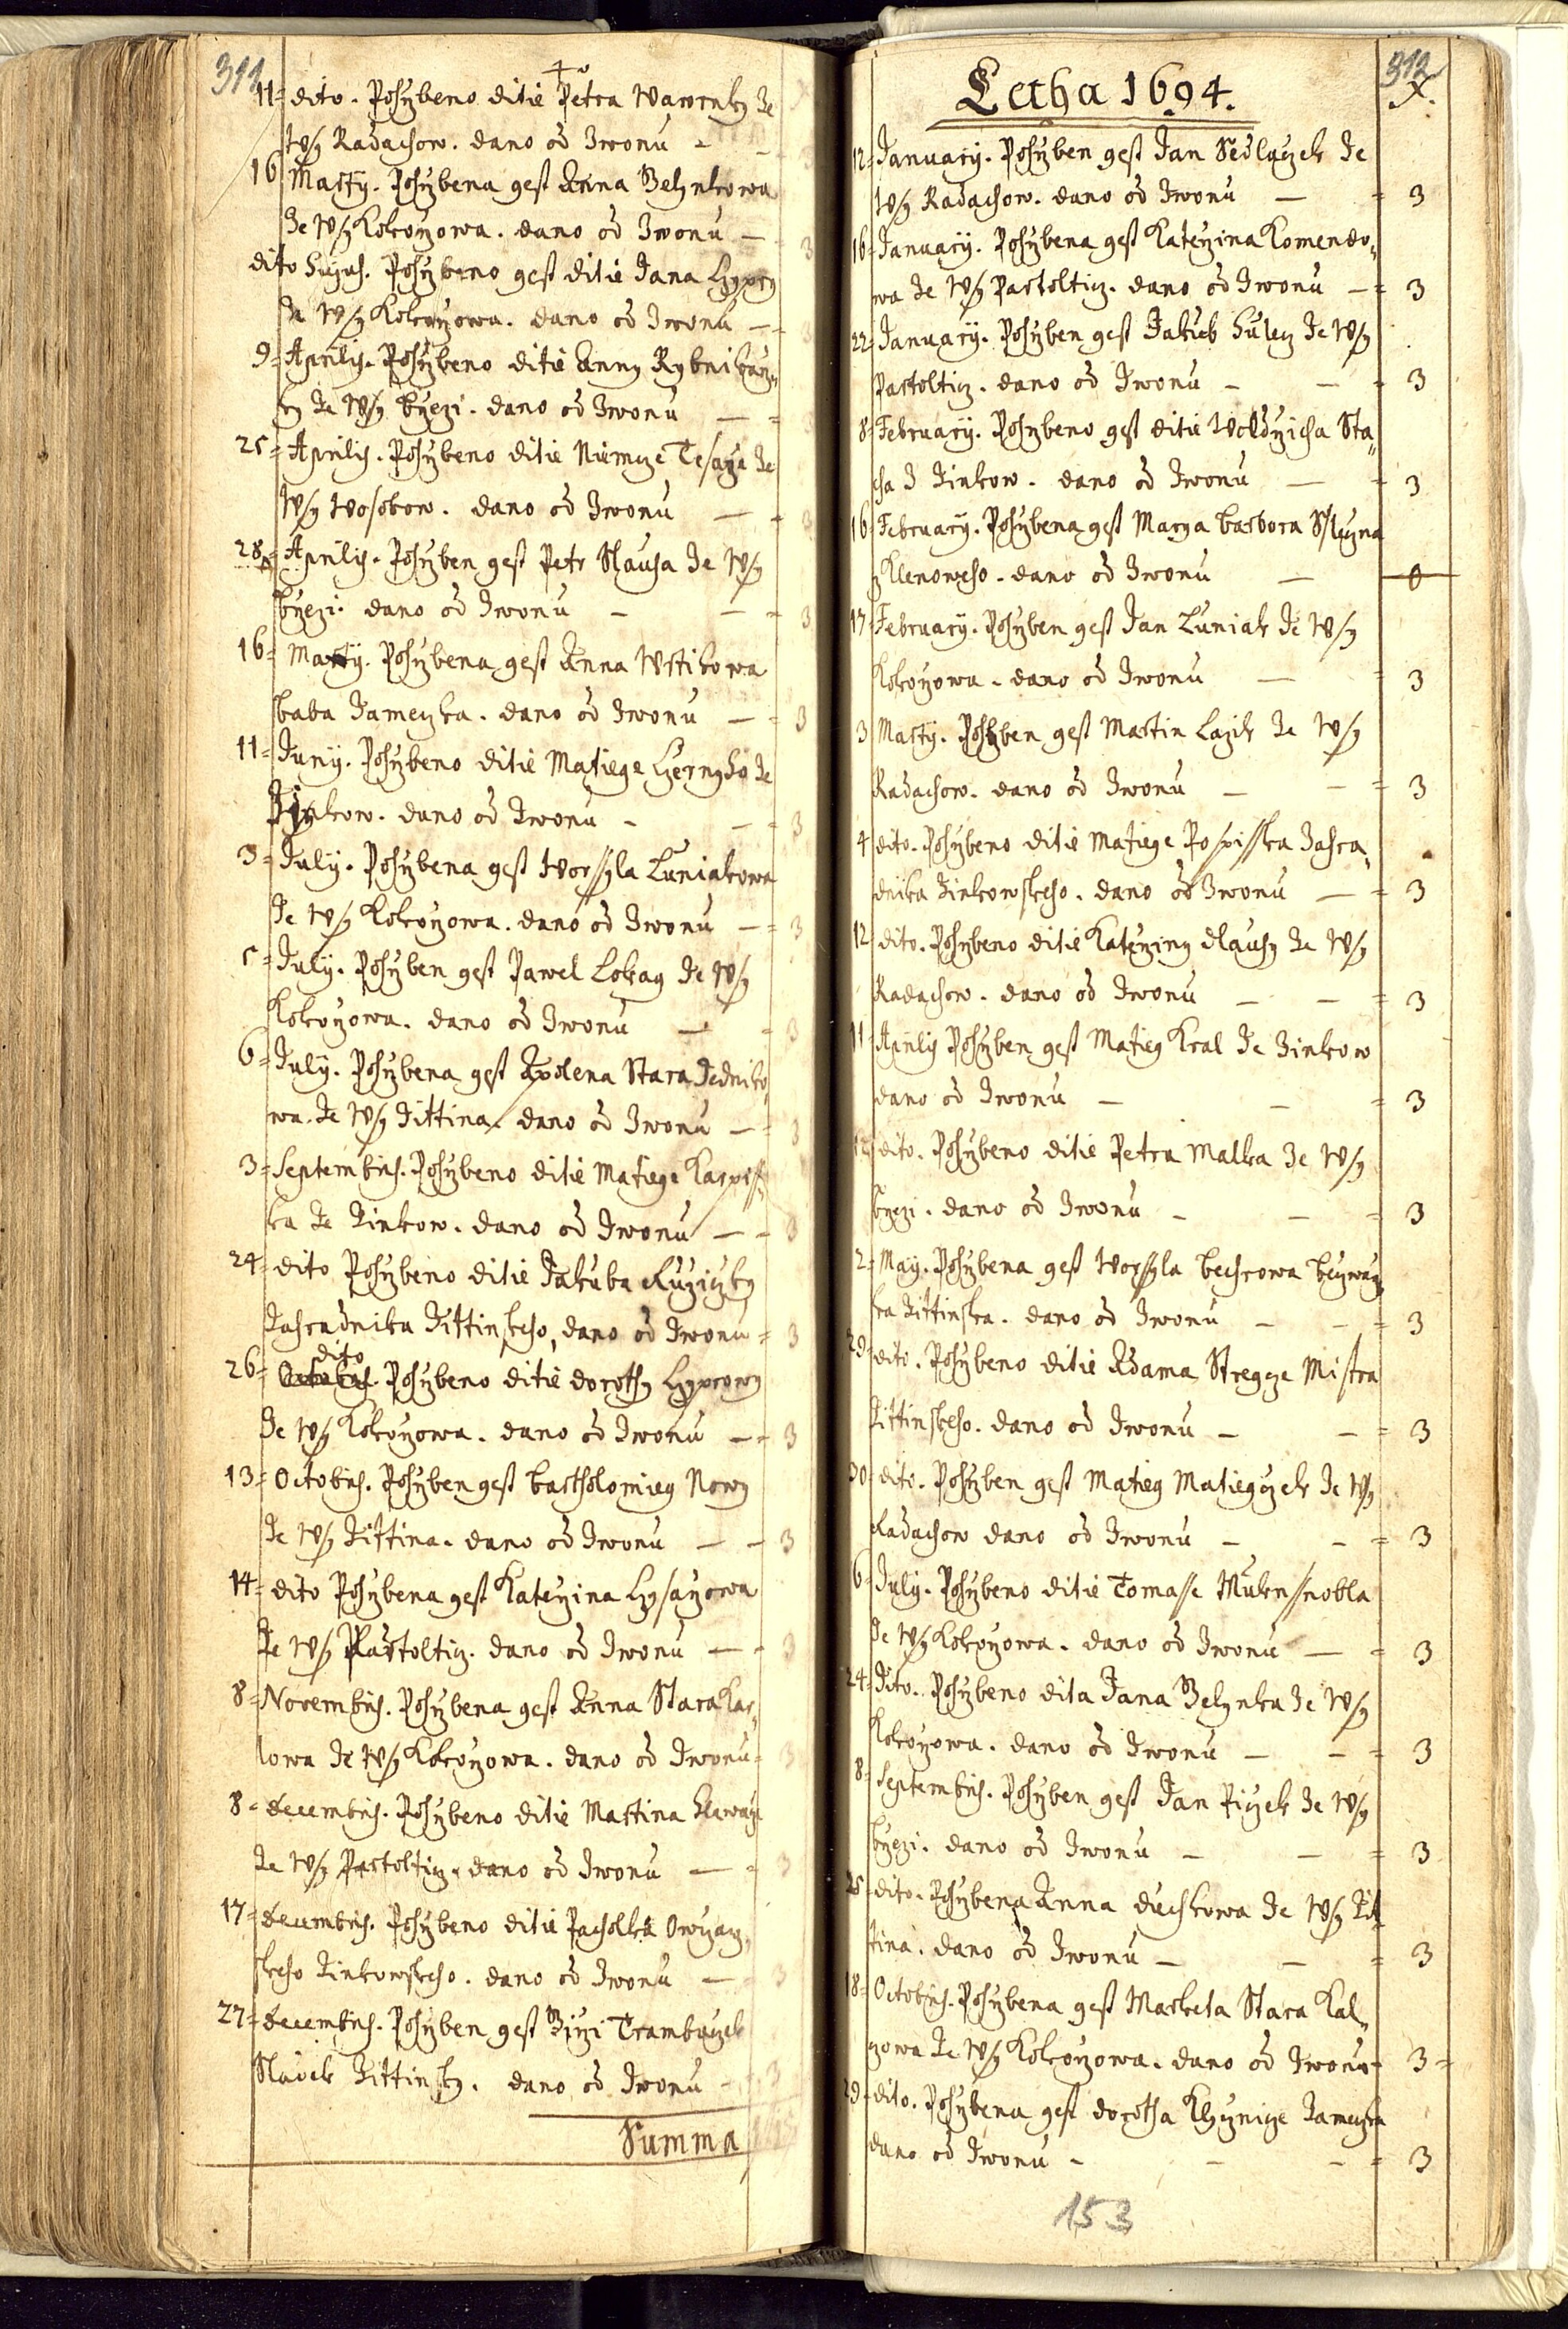 311
11= dito. Pohržbeno ditie Petra Wawrnky Ze
Wsy Radachow. dano od Zwonu =
16 Marty. Pohržbena gest Anna Belynkowa
Ze Wsy Kokoržowa. dano od Zwonu — 3
dito huius. Pohržbeno gest ditie Jana Hypry
Ze Wsy Kokoržowa. dano od Zwonu — 3
9= Aprilis. Pohržbeno ditie Anny
Ze Wsy Bržezi. dano od Zwonu — =
25= Aprilis. Pohržbeno ditie Niemcze Tesarže Ze
Wsy Wosobow. dano od Zwonu — = 3
28= Aprilis. Pohržben gest Petr Slauha Ze Wsy
Bržezi. dano od Zwonu — — = 3
16= Marty. Pohržbena gest Anna Wstikowa
baba Zameczka. dano od Zwonu — = 3
11= Juny. Pohržbeno ditie Matiege Czerneho Ze
Zinkow. dano od Zwonu — — = 3
3= July. Pohržbena gest Worssyla Luniakowa
Ze Wsy Kokoržowa. dano od Zwonu — = 3
5= July. Pohržben gest Pawel Lokay Ze Wsy
Kokoržowa. dano od Zwonu — = 3
6= July. Pohržbena gest Apolena Stara Zedniko
wa. Ze Wsy Zittina. dano od Zwonu — = 3
3= Septembris. Pohržbeno ditie Matiege Karpiss,
ka Ze Zinkow. dano od Zwonu — = 3
24= dito Pohržbeno ditie Jakuba Ružiczky
Zahradnika Zittinskeho, dano od Zwonu = 3
dito
26= Pohržbeno ditie dorothy Hyprowy
Ze Wsy Kokoržowa. dano od Zwonu — = 3
13= Octobris. Pohržben gest bartholomieg Nowy
Ze Wsy Zittina. dano od Zwonu — — 3
14= dito Pohržbena gest Kateržina Lysaržowa
Ze Wsy Partolticz. dano od Zwonu — = 3
8= Novembris. Pohržbena gest Anna Stara Kar,
lowa Ze Wsy Kokoržowa. dano od Zwonu = 3
8= decembris. Pohržbeno ditie Martina
Ze Wsy Partolticz. dano od Zwonu — = 3
17= decembris. Pohržbeno ditie Pacholka Owczarz,
skeho Zinkowskeho. dano od Zwonu — 3
27= decembris. Pohržben gest Giržj Tramburzek
Sladek Zittinsky. dano od Zwonu — 3
Summa
312
X.
Letha 1694.
12= January. Pohržben gest Jan Sedlaczek Ze
Wsy Radachow. dano od Zwonu — = 3
16= January. Pohržbena gest Kateržina Komendo,
wa Ze Wsy Partolticz. dano od Zwonu — = 3
22= January. Pohržben gest Jakub Sulcz Ze Wsy
Partolticz. dano od Zwonu — — = 3
8= February. Pohržbeno gest ditie Woldržicha Sta,
cha Z Zinkow. dano od Zwonu — = 3
16= February. Pohržbena gest Marya barbora Sslyna
z Klenoweho. dano od Zwonu — 0
17= February. Pohržben gest Jan Luniak Ze Wsy
Kokoržowa. dano od Zwonu — = 3
3 Marty. Pohržben gest Martin Lazik Ze Wsy
Radachow. dano od Zwonu — — = 3
4 dito. Pohržbeno ditie Matiege Pospisska Zahra,
dnika Zinkowskeho. dano od Zwonu — = 3
12 dito. Pohržbeno ditie Kateržiny dlauhy Ze Wsy
Radachow. dano od Zwonu — — = 3
11= Aprilis Pohržben gest Matieg Kral Ze Zinkow
dano od Zwonu — — = 3
dito. Pohržbeno ditie Petra Malka Ze Wsy
Bržezi. dano od Zwonu — — = 3
2= May. Pohržbena gest Worssyla bechrowa
ka Zittinska. dano od Zwonu — — = 3
29= dito. Pohržbeno ditie Adama Stregcze Mistra
Zittinskeho. dano od Zwonu — — = 3
30= dito. Pohržben gest Matieg Matiegczek Ze Wsy
Radachow dano od Zwonu — — = 3
6= July. Pohržbeno ditie Tomasse Muknssnobla
Ze Wsy Kokoržowa. dano od Zwonu — = 3
24= dito. Pohržbeno dita Jana Belynka Ze Wsy
Kokoržowa. dano od Zwonu — — = 3
8= Septembris. Pohržben gest Jan Ržiczek Ze Wsy
Bržezi. dano od Zwonu — — = 3
25 dito. Pohržbena Anna duchkowa Ze Wsy Zit
tina. dano od Zwonu — — = 3
18= Octobris. Pohržbena gest Marketa Stara Kal,
czowa Ze Wsy Kokoržowa. dano od Zwonu = 3 =
29= dito. Pohržbena gest dorotha Zamezka
dano od Zwonu — — = 3
153